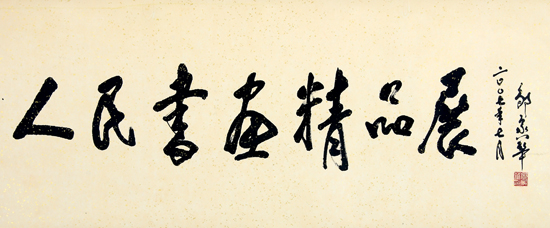 人民书画精品展
二〇〇七年七月
邹家华